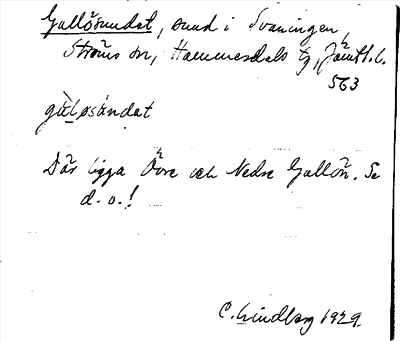 Gallösundet, sund i Svaningen,
Ströms sn, Hammerdals tg, Jämtl. l.
563
gàḷøsúndat
Där ligga Övre och Nedre Gallön. Se
d. o.!
C. Lindberg 1929.